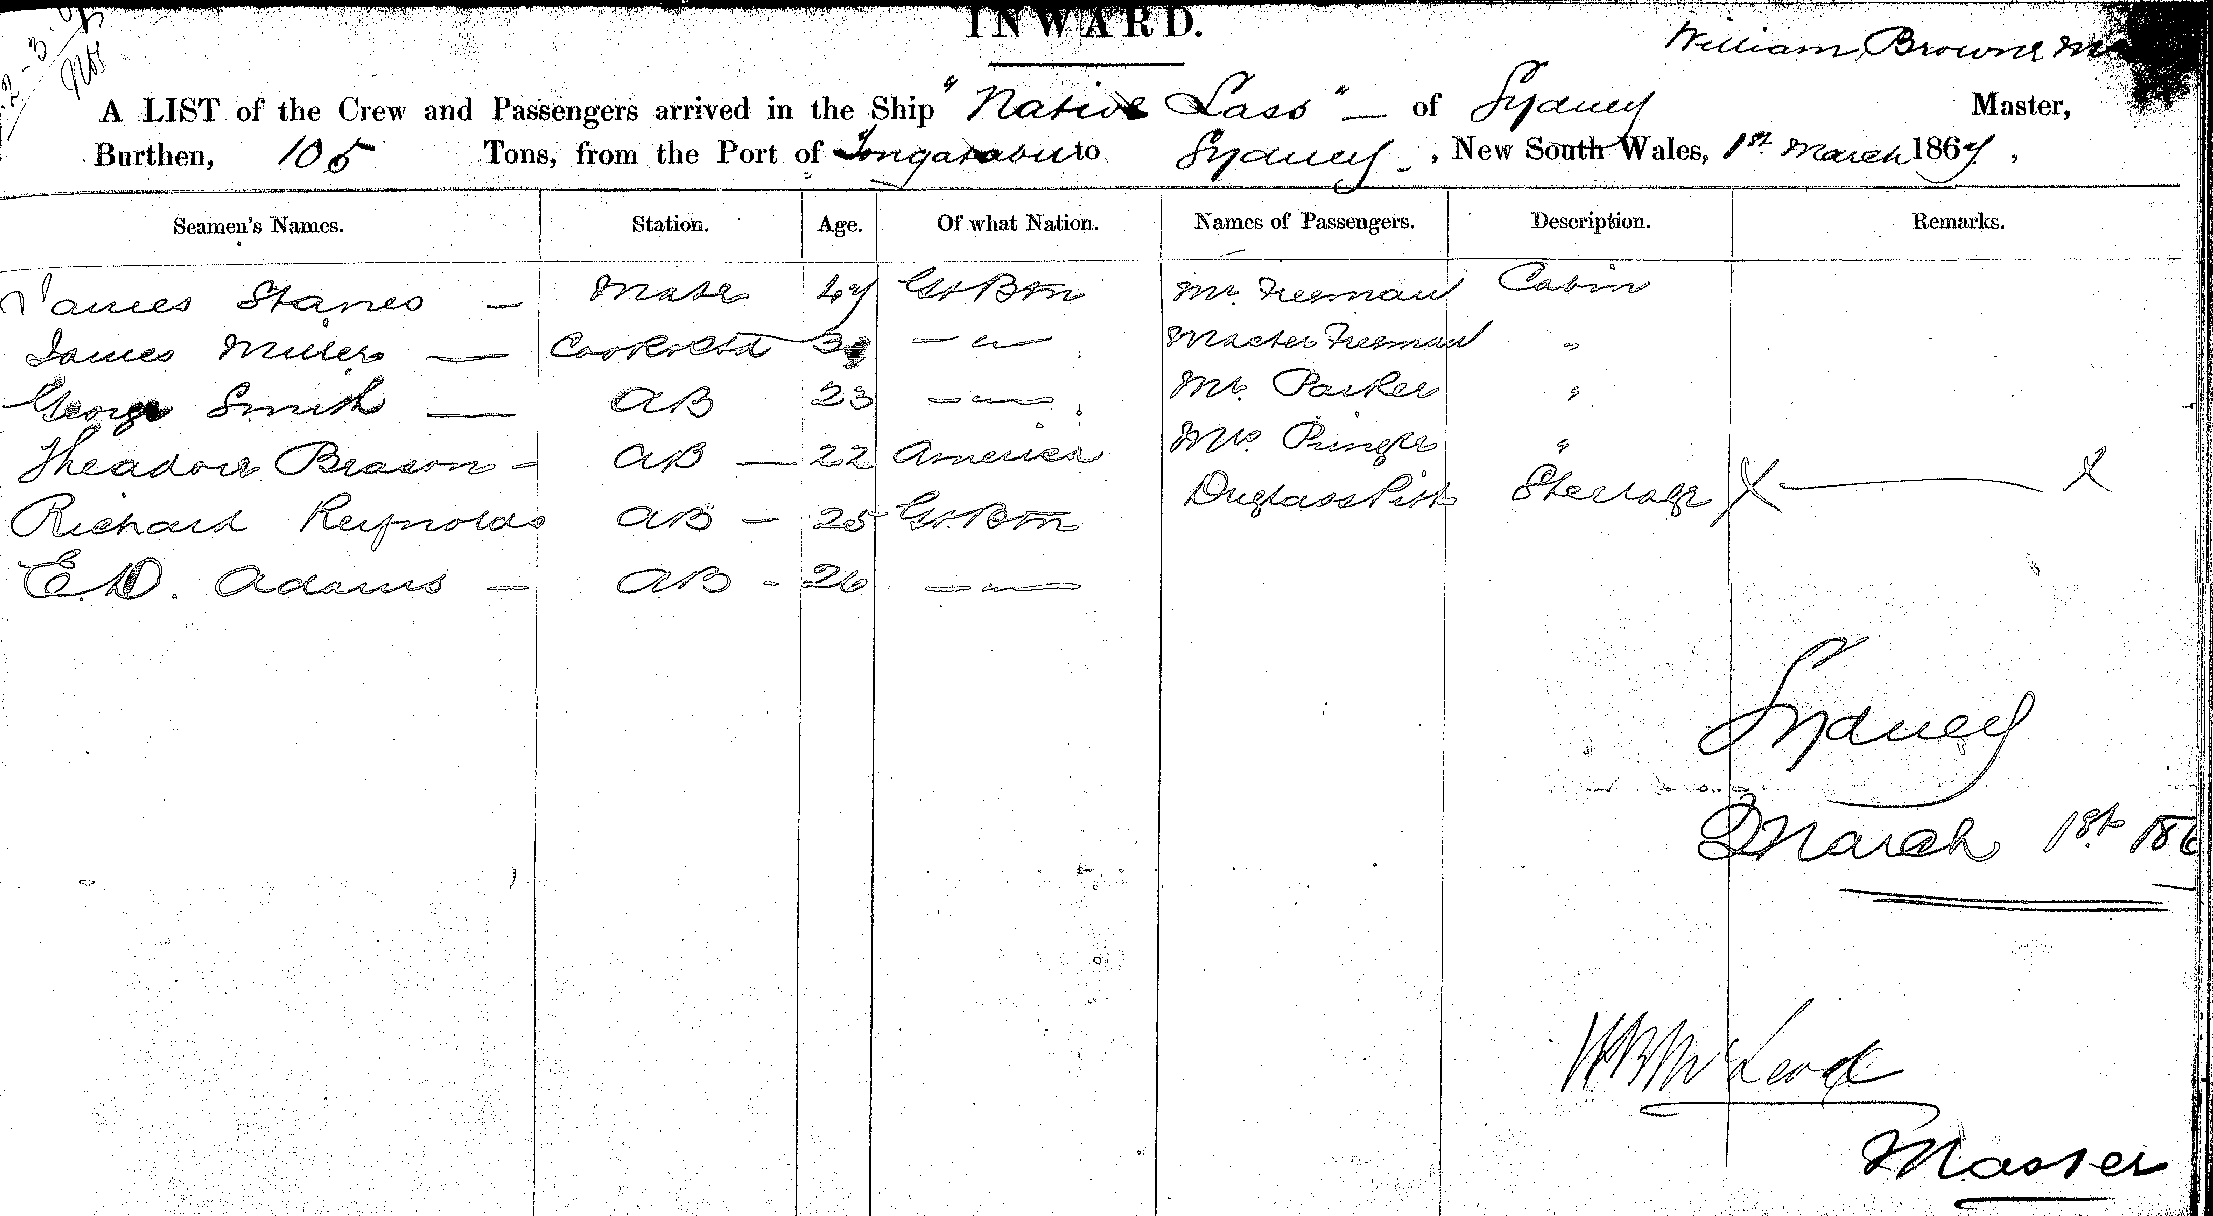 INWARD.
William Browne M
A LIST of the Crew and Passengers arrived in the Ship "Native Lass" — of Sydney Master,
Burthen, 105 Tons, from the Port of Tongatabu to Sydney, New South Wales, 1st March 1867.
Seamen's Names. Station. Age. Of what Nation. Names of Passengers. Description. Remarks.
James Stanes — Mate 47 Gt Btn Mr. Freeman Cabin
James Miller — Cook & Std 3 — " — Master Freeman "
George Smith — AB 23 — " — Mr. Parker "
Theadore Beason - AB — 22 America Mrs. "
Richard Reynolds AB — 25 Gt. Btn Steerage X — X
E.D. Adams — AB - 26 — " —
Sydney
March 1st 186
McLeod
Master